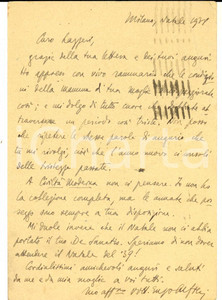 Milano, Natale 1938
Caro Lazzeri,
grazie della tua lettera e dei tuoi auguri.
Ho appreso con vivo rammarico che le condizioni
della mamma di tua moglie
così; e mi dolgo di tutto cuore
traversare un periodo così triste. Non posso
che ripetere le stesse parole di augurio che
tu mi rivolgi, così che l'anno nuovo vi consoli
delle tristezze passate.
A Civiltà Moderna non ci pensare. Io non ho
la collezione completa, ma le annate che pos-
seggo sono sempre a tua disposizione.
Mi duole invece che il Natale non ci abbia
portato il tuo De Sanctis. Speriamo di non dover
attendere il Natale del '39!
Cordialissimi amichevoli auguri e saluti
da me e da mia moglie a voi tutti.
tuo aff.mo